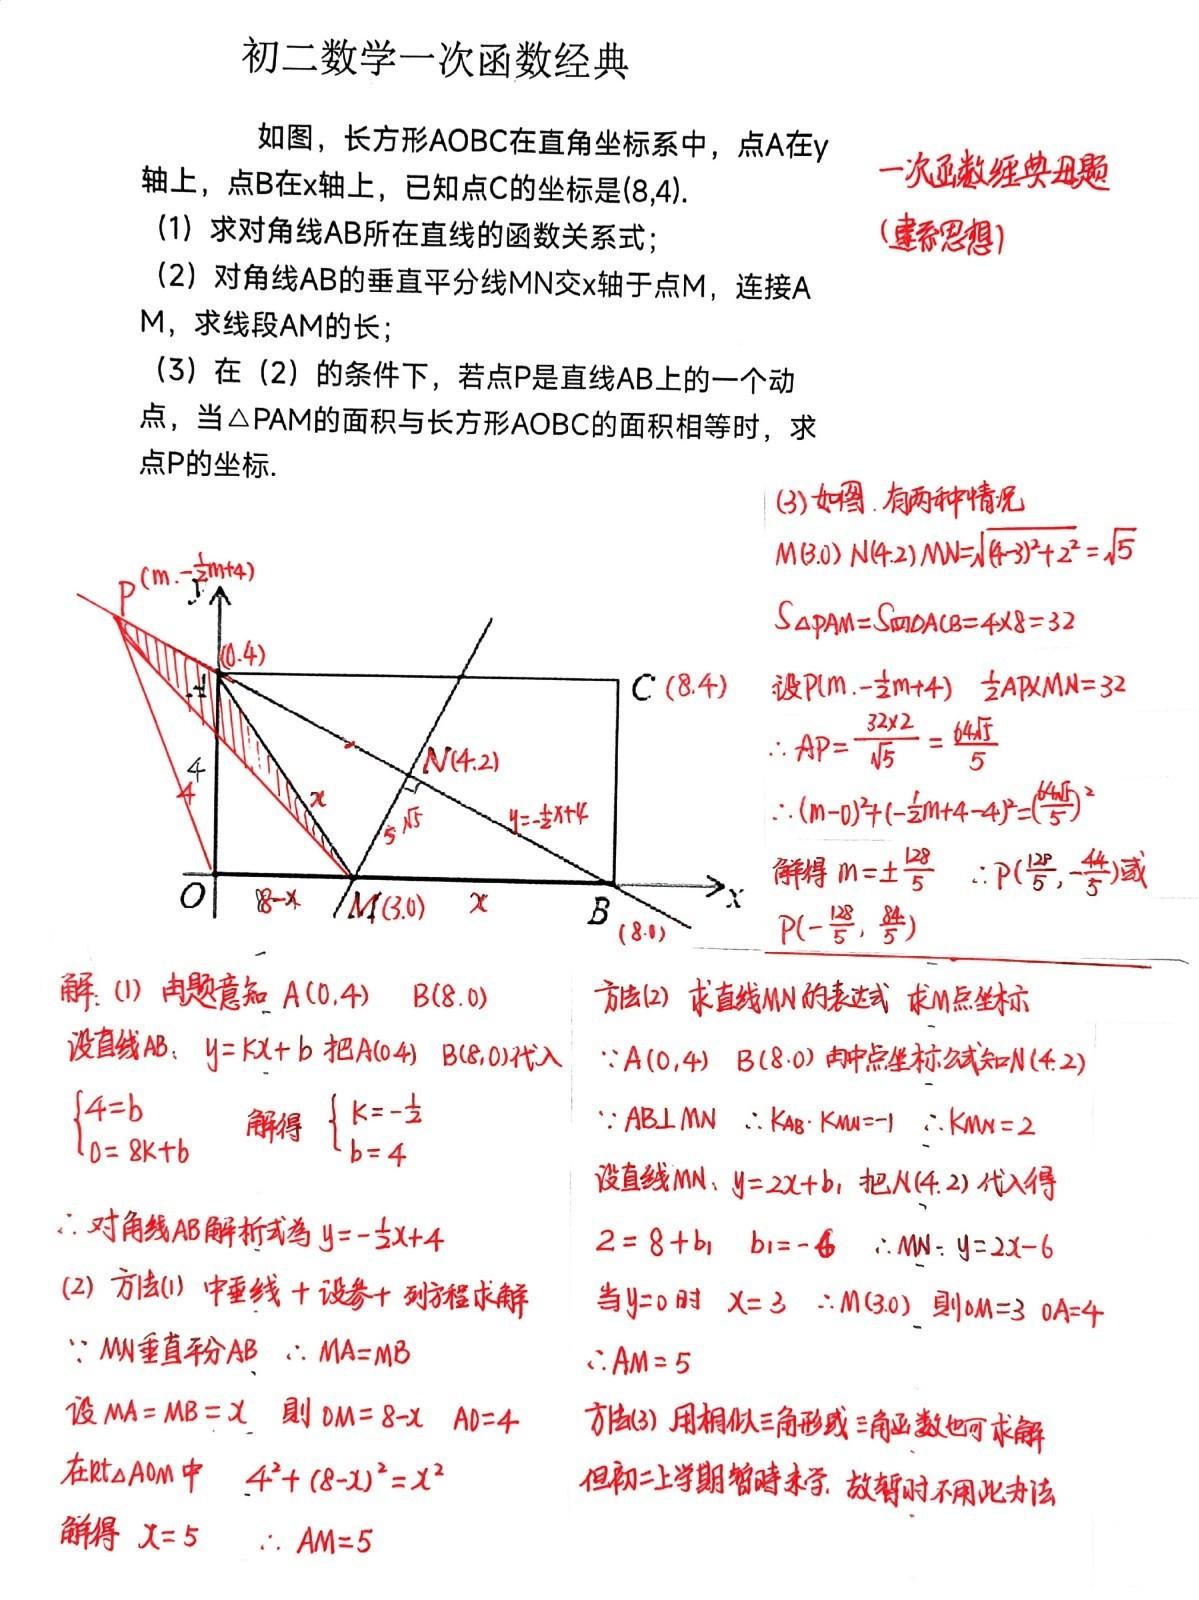 初二数学一次函数经典
如图，长方形AOBC在直角坐标系中，点A在y
轴上，点B在x轴上，已知点C的坐标是(8,4).
（1）求对角线AB所在直线的函数关系式；
（2）对角线AB的垂直平分线MN交x轴于点M，连接A
M，求线段AM的长；
（3）在（2）的条件下，若点P是直线AB上的一个动
点，当△PAM的面积与长方形AOBC的面积相等时，求
点P的坐标.
一次函数经典母题
(建系思想)
(3) 如图.有两种情况
M(3.0) N(4.2) MN=√((4-3)²+2²)=√5
S△PAM=S四OACB=4×8=32
设P(m.-½m+4) ½AP×MN=32
∴AP=32×2/√5=64√5/5
∴(m-0)²+(-½m+4-4)²=(64√5/5)²
解得 m=±128/5 ∴P(128/5,-44/5)或
P(-128/5,84/5)
P(m.-½m+4)
y
(0.4)
A
C (8.4)
N(4.2)
4
4
x
5
√5
y=-½x+4
O
8-x
M(3.0)
x
B
(8.0)
x
解:(1) 由题意知 A(0,4) B(8.0)
设直线AB: y=kx+b 把A(0 4) B(8,0)代入
{4=b
0=8k+b 解得 {k=-½
b=4
∴对角线AB解析式為 y=-½x+4
(2) 方法(1) 中垂线+设参+列方程求解
∵MN垂直平分AB ∴MA=MB
设MA=MB=x 則OM=8-x AO=4
在Rt△AOM中 4²+(8-x)²=x²
解得 x=5 ∴AM=5
方法(2) 求直线MN的表达式 求M点坐标
∵A(0,4) B(8.0) 由中点坐标公式知N(4.2)
∵AB⊥MN ∴KAB·KMN=-1 ∴KMN=2
设直线MN: y=2x+b₁ 把N(4.2)代入得
2=8+b₁ b₁=-6 ∴MN: y=2x-6
当y=0时 x=3 ∴M(3.0) 則OM=3 OA=4
∴AM=5
方法(3) 用相似三角形或三角函数也可求解
但初二上学期暂時未学.故暂时不用此方法